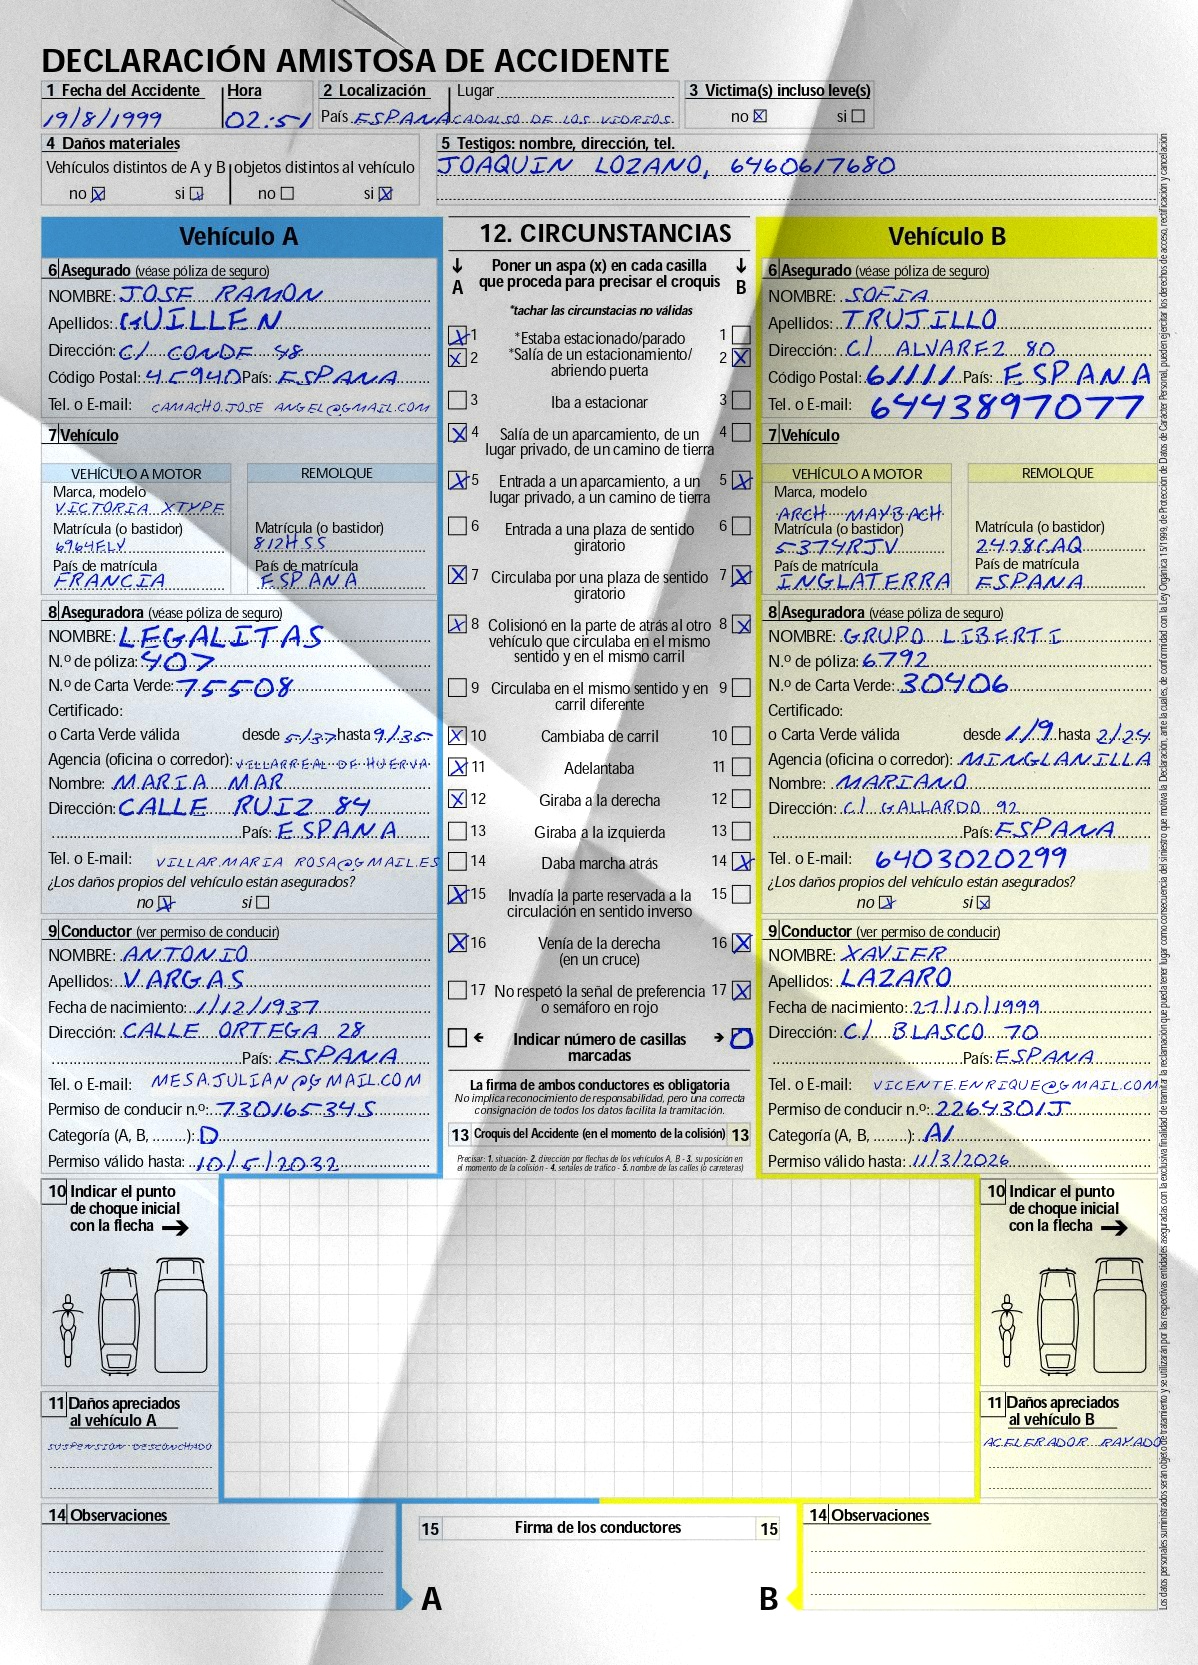 DECLARACIÓN AMISTOSA DE ACCIDENTE
1 Fecha del Accidente Hora 2 Localización Lugar 3 Victima(s) incluso leve(s)
19/8/1999 02:51 País ESPANA CADALSO DE LOS VIDRIOS no si
4 Daños materiales
Vehículos distintos de A y B objetos distintos al vehículo
no si no si
5 Testigos: nombre, dirección, tel.
JOAQUIN LOZANO, 6460617680
Vehículo A
6 Asegurado (véase póliza de seguro)
NOMBRE: JOSE RAMON
Apellidos: GUILLEN
Dirección: C/ CONDE 48
Código Postal: 45940 País: ESPANA
Tel. o E-mail: CAMACHO.JOSE ANGEL@GMAIL.COM
7 Vehículo
VEHÍCULO A MOTOR REMOLQUE
Marca, modelo
VICTORIA XTYPE
Matrícula (o bastidor) Matrícula (o bastidor)
6964FLV 812HSS
País de matrícula País de matrícula
FRANCIA ESPANA
8 Aseguradora (véase póliza de seguro)
NOMBRE: LEGALITAS
N.º de póliza: 407
N.º de Carta Verde: 75508
Certificado:
o Carta Verde válida desde 5/37 hasta 9/35
Agencia (oficina o corredor): VILLARREAL DE HUERVA
Nombre: MARIA MAR
Dirección: CALLE RUIZ 84
País: ESPANA
Tel. o E-mail: VILLAR.MARIA ROSA@GMAIL.ES
¿Los daños propios del vehículo están asegurados?
no si
9 Conductor (ver permiso de conducir)
NOMBRE: ANTONIO
Apellidos: VARGAS
Fecha de nacimiento: 1/12/1937
Dirección: CALLE ORTEGA 28
País: ESPANA
Tel. o E-mail: MESA.JULIAN@GMAIL.COM
Permiso de conducir n.º: 73016534S
Categoría (A, B, ........): D
Permiso válido hasta: 10/5/2032
12. CIRCUNSTANCIAS
A Poner un aspa (x) en cada casilla que proceda para precisar el croquis B
*tachar las circunstacias no válidas
1 *Estaba estacionado/parado 1
2 *Salía de un estacionamiento/ 2
abriendo puerta
3 Iba a estacionar 3
4 Salía de un aparcamiento, de un 4
lugar privado, de un camino de tierra
5 Entrada a un aparcamiento, a un 5
lugar privado, a un camino de tierra
6 Entrada a una plaza de sentido 6
giratorio
7 Circulaba por una plaza de sentido 7
giratorio
8 Colisionó en la parte de atrás al otro 8
vehículo que circulaba en el mismo
sentido y en el mismo carril
9 Circulaba en el mismo sentido y en 9
carril diferente
10 Cambiaba de carril 10
11 Adelantaba 11
12 Giraba a la derecha 12
13 Giraba a la izquierda 13
14 Daba marcha atrás 14
15 Invadía la parte reservada a la 15
circulación en sentido inverso
16 Venía de la derecha 16
(en un cruce)
17 No respetó la señal de preferencia 17
o semáforo en rojo
Indicar número de casillas
marcadas
0
La firma de ambos conductores es obligatoria
No implica reconocimiento de responsabilidad, pero una correcta
consignación de todos los datos facilita la tramitación.
13 Croquis del Accidente (en el momento de la colisión) 13
Precisar: 1. situación- 2. dirección por flechas de los vehículos A, B - 3. su posición en
el momento de la colisión - 4. señales de tráfico - 5. nombre de las calles (o carreteras)
Vehículo B
6 Asegurado (véase póliza de seguro)
NOMBRE: SOFIA
Apellidos: TRUJILLO
Dirección: C/ ALVAREZ 80
Código Postal: 61111 País: ESPANA
Tel. o E-mail: 6443897077
7 Vehículo
VEHÍCULO A MOTOR REMOLQUE
Marca, modelo
ARCH MAYBACH
Matrícula (o bastidor) Matrícula (o bastidor)
5374RJV 2428CAQ
País de matrícula País de matrícula
INGLATERRA ESPANA
8 Aseguradora (véase póliza de seguro)
NOMBRE: GRUPO LIBERTI
N.º de póliza: 6792
N.º de Carta Verde: 30406
Certificado:
o Carta Verde válida desde 1/9 hasta 2/24
Agencia (oficina o corredor): MINGLANILLA
Nombre: MARIANO
Dirección: C/ GALLARDO 92
País: ESPANA
Tel. o E-mail: 6403020299
¿Los daños propios del vehículo están asegurados?
no si
9 Conductor (ver permiso de conducir)
NOMBRE: XAVIER
Apellidos: LAZARO
Fecha de nacimiento: 27/10/1999
Dirección: C/ BLASCO 70
País: ESPANA
Tel. o E-mail: VICENTE.ENRIQUE@GMAIL.COM
Permiso de conducir n.º: 2264301J
Categoría (A, B, ........): A1
Permiso válido hasta: 11/3/2026
10 Indicar el punto
de choque inicial
con la flecha
11 Daños apreciados
al vehículo A
SUSPENSION DESCONCHADO
10 Indicar el punto
de choque inicial
con la flecha
11 Daños apreciados
al vehículo B
ACELERADOR RAYADO
14 Observaciones
15 Firma de los conductores 15
A B
14 Observaciones
Los datos personales suministrados serán objeto de tratamiento y se utilizarán por las respectivas entidades aseguradas con la exclusiva finalidad de tramitar la reclamación que pueda tener lugar como consecuencia del siniestro que motiva la Declaración, ante la cuales, de conformidad con la Ley Orgánica 15/1999, de Protección de Datos de Carácter Personal, pueden ejercitar los derechos de acceso, rectificación y cancelación